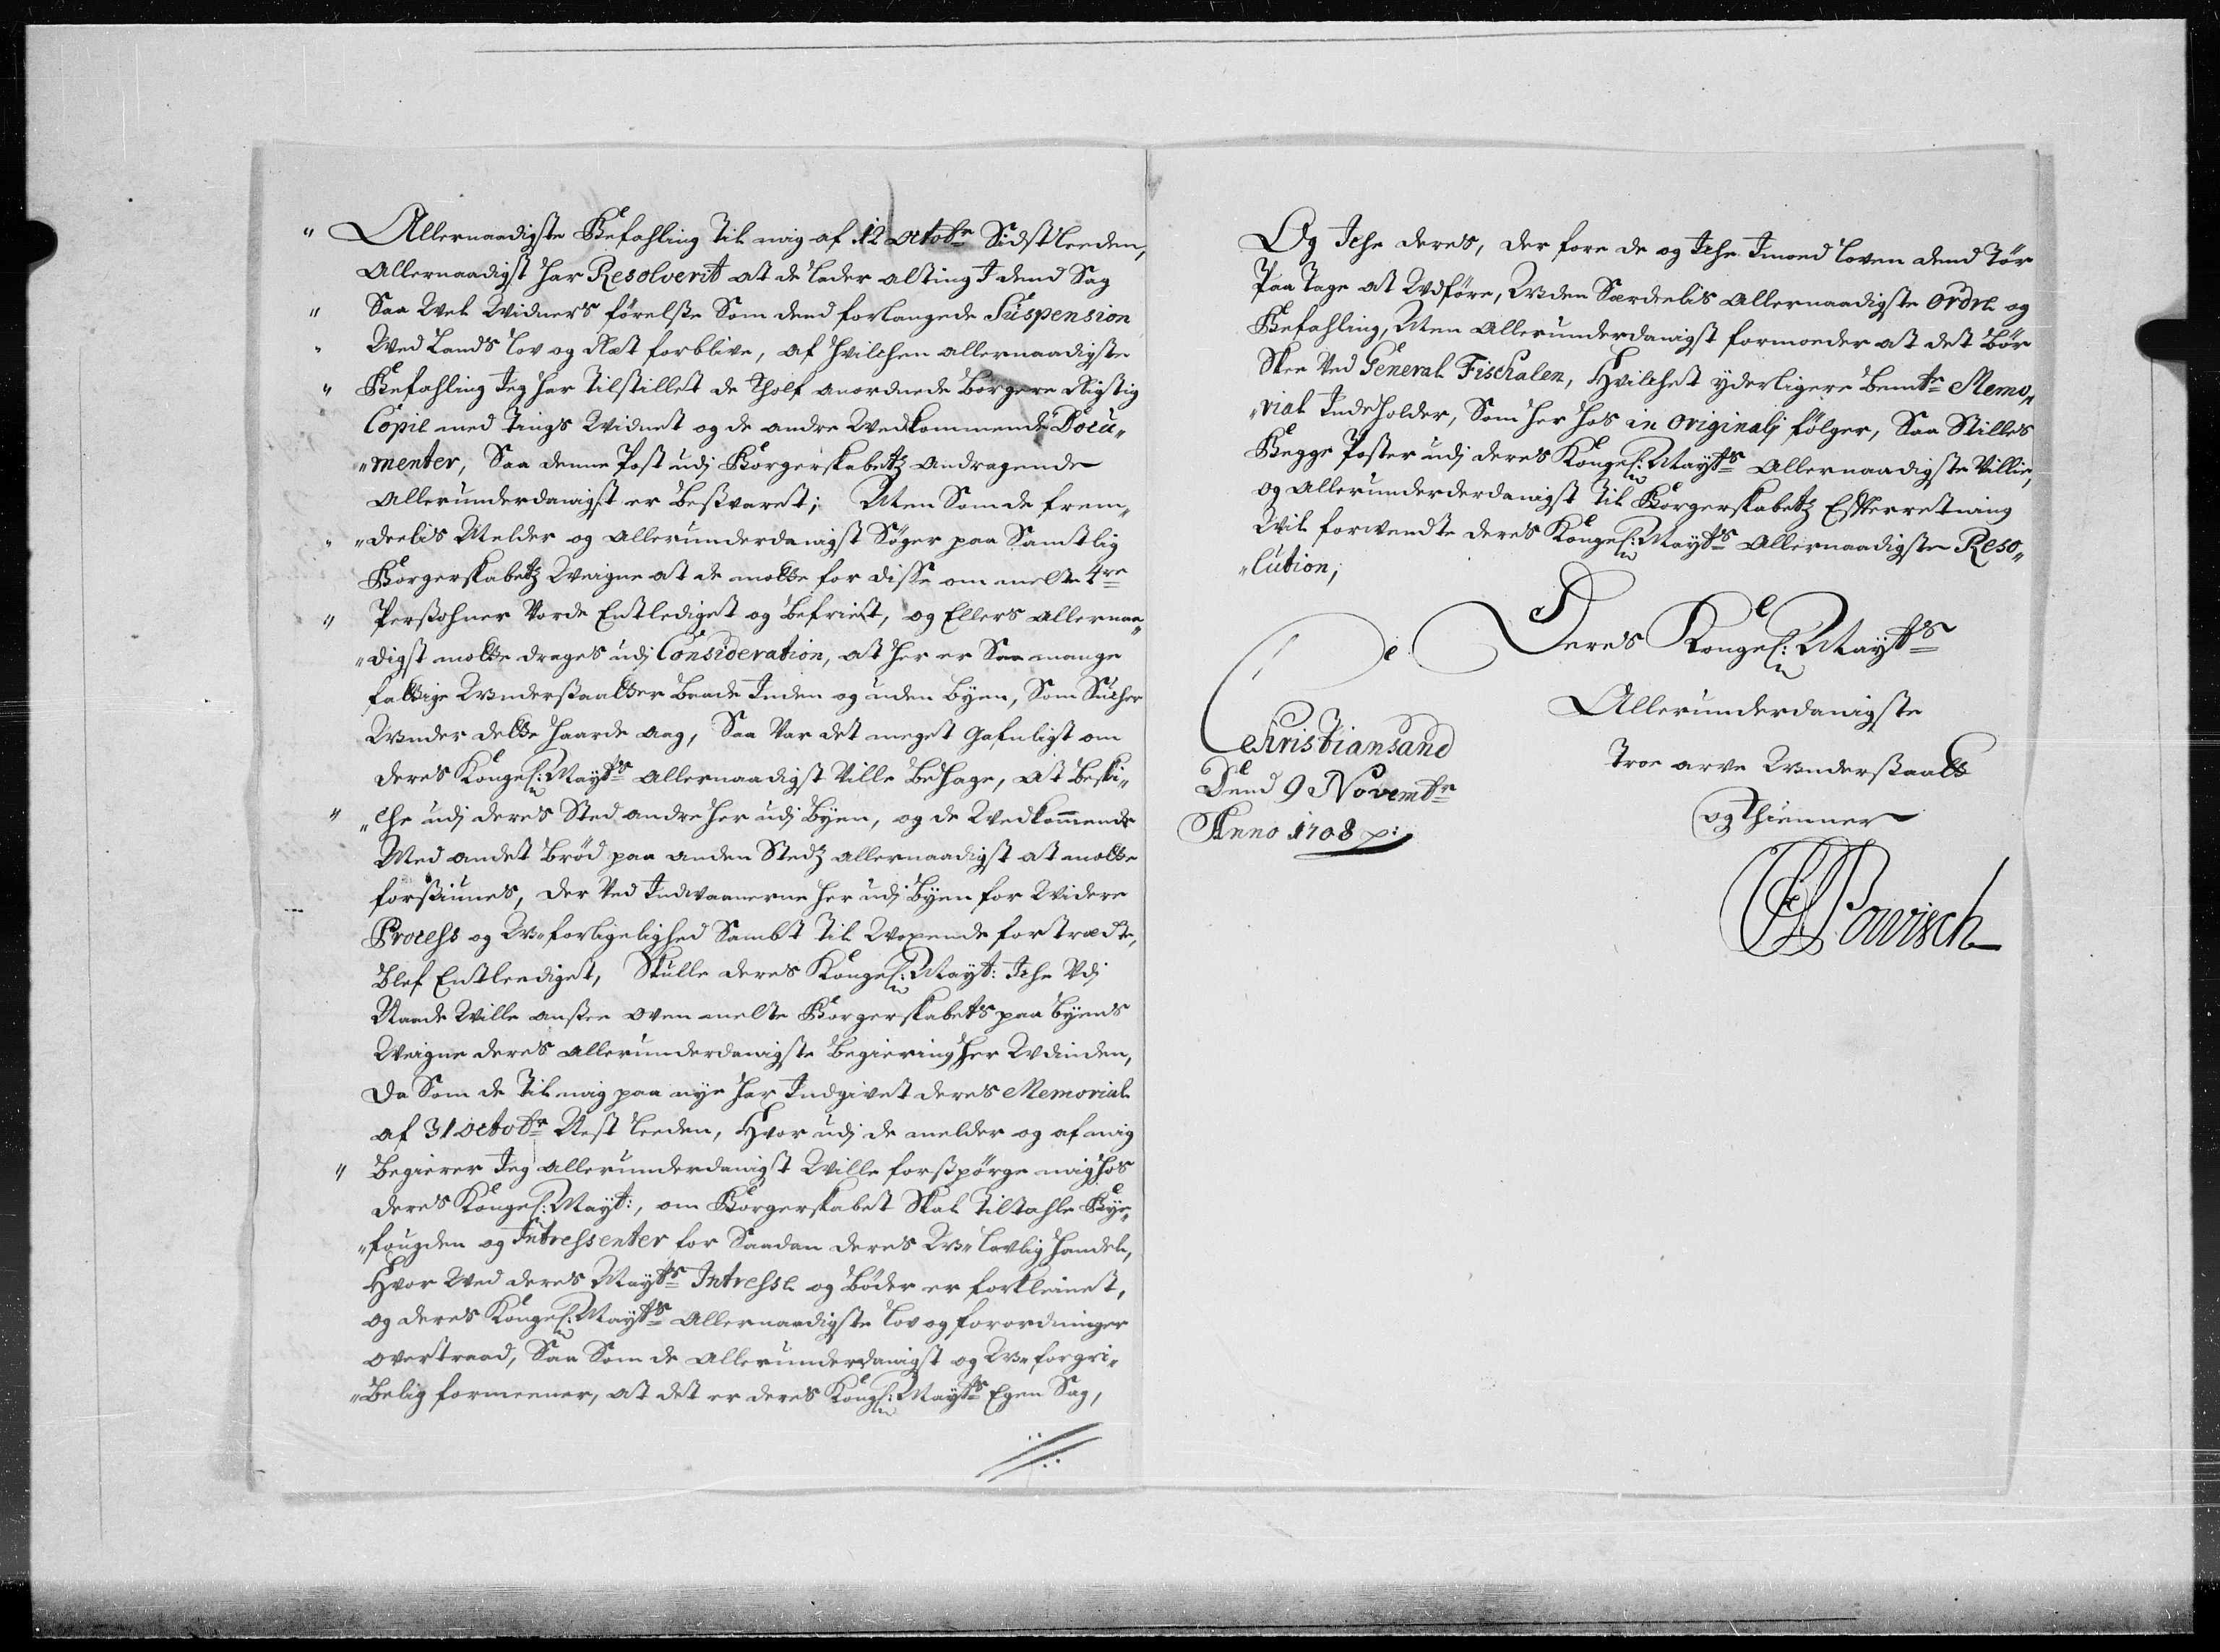 " Allernaadigste Befahling til mig af 12 octobr Sidstleeden,
Allernaadigst har Resolverit at de lader alting I dend Sag
" Saa Vel Widners förelsse Som dend forlangede Suspension
" Wed Lands Lov og Ræt forblive, af hvilchen allernaadigste
" Befahling Jeg har tilstillet de Tholf anordnede borgere Rigtig
Copie med Tings Widnet og de andre Wedkommende Docu„
„menter, Saa denne Post udj Borgerskabetz andragende
Allerunderdanigst er besvaret; Men Som de frem„
" „deelis Melder og allerunderdanigst Söger paa Samtlig
Borgerskabetz Weigne at de motte for disse om melte 4re
" Perssohner Vorde Entlediget og befriet, og Ellers allernaa„
„digst motte drages udj Consideration, at her er Saa mange
fattige Wnderssaatter baade Inden og uden Byen, Som Sucher
Wnder dette haarde aag, Saa Var det meget gafnligt om
deres Kongel: Maytts allernaadigst Ville behage, at beski„
" „che udj deres Sted andre her udj Byen, og de Wedkommende
Med andet bröd paa anden Stedz allernaadigst at motte
forssiunes, der Ved Indvaanerne her udj Byen for Widere
Process og W„forligelighed Sambt til Woxende fortrædte,
blef Entleediget, Skulle deres Kongel: Mayt: Iche Vdj
Naade Wille anssee oven melte Borgerskabets paa Byends
Weigne deres allerunderdanigste begiering her Wdinden,
da Som de til mig paa nye har Indgivet deres Memorial
af 31 octobr Nest leeden, Hvor udj de melder og af mig
" begierer Jeg allerunderdanigst Wille forsspörge mig hos
deres Kongel: Mayt:, om Borgerskabet Skal tiltahle Bye„
„fougden og Intressenter for Saadan deres W„lovlig handel,
Hvor Wed deres Maytts Intresse og böder er forkleinet,
og deres Kongel: Maytts Allernaadigste Lov og forordninger
overtraad, Saa Som de Allerunderdanigst og W„forgri„
„belig formeener, at det er deres Kongl: Maytts Egen Sag,
Og Iche deres, der fore de og Iche Imoed Loven dend tör
Paa tage at Wdföre, Wden Særdeelis allernaadigste ordre og
Befahling, Men allerunderdanigst formoeder at det bör
Skee Ved General Fischalen, Hvilchet yderligere bemte Memo„
„rial Indeholder, Som her hos in originalj fölger, Saa Stilles
Begge Poster udj deres Kongel: Maytts Allernaadigste Villie,
og allerunderderdanigst til Borgerskabetz Efterretning
Wil forwendte deres Kongel: Maytts Allernaadigste Reso„
„lution;
Deres Kongel: Maytts
Allerunderdanigste
Troe arve Wnderssaatt
og Thienner
Christiansand
Dend 9 Novembr
Anno 1708 p:
Powisch